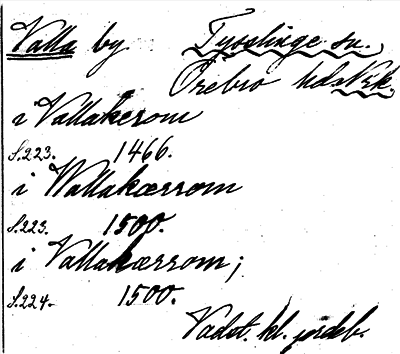 Valla by Tysslinge sn.
Örebro hds Nrk.
i Vallakerom
S. 223. 1466.
i Wallakærrom
S. 223. 1500.
i Vallakærrom;
S. 224. 1500.
Vadst. kl. jordeb.